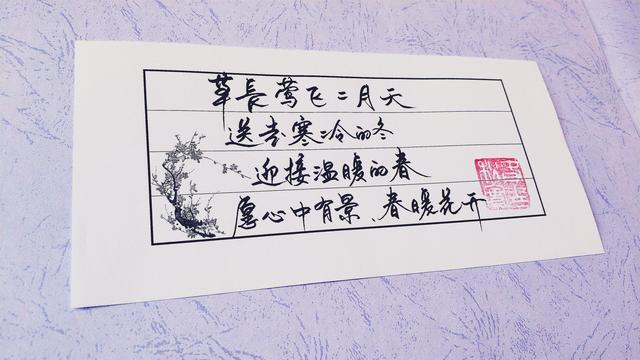 草長莺飞二月天
送去寒冷的冬
迎接温暖的春
愿心中有景、春暖花开